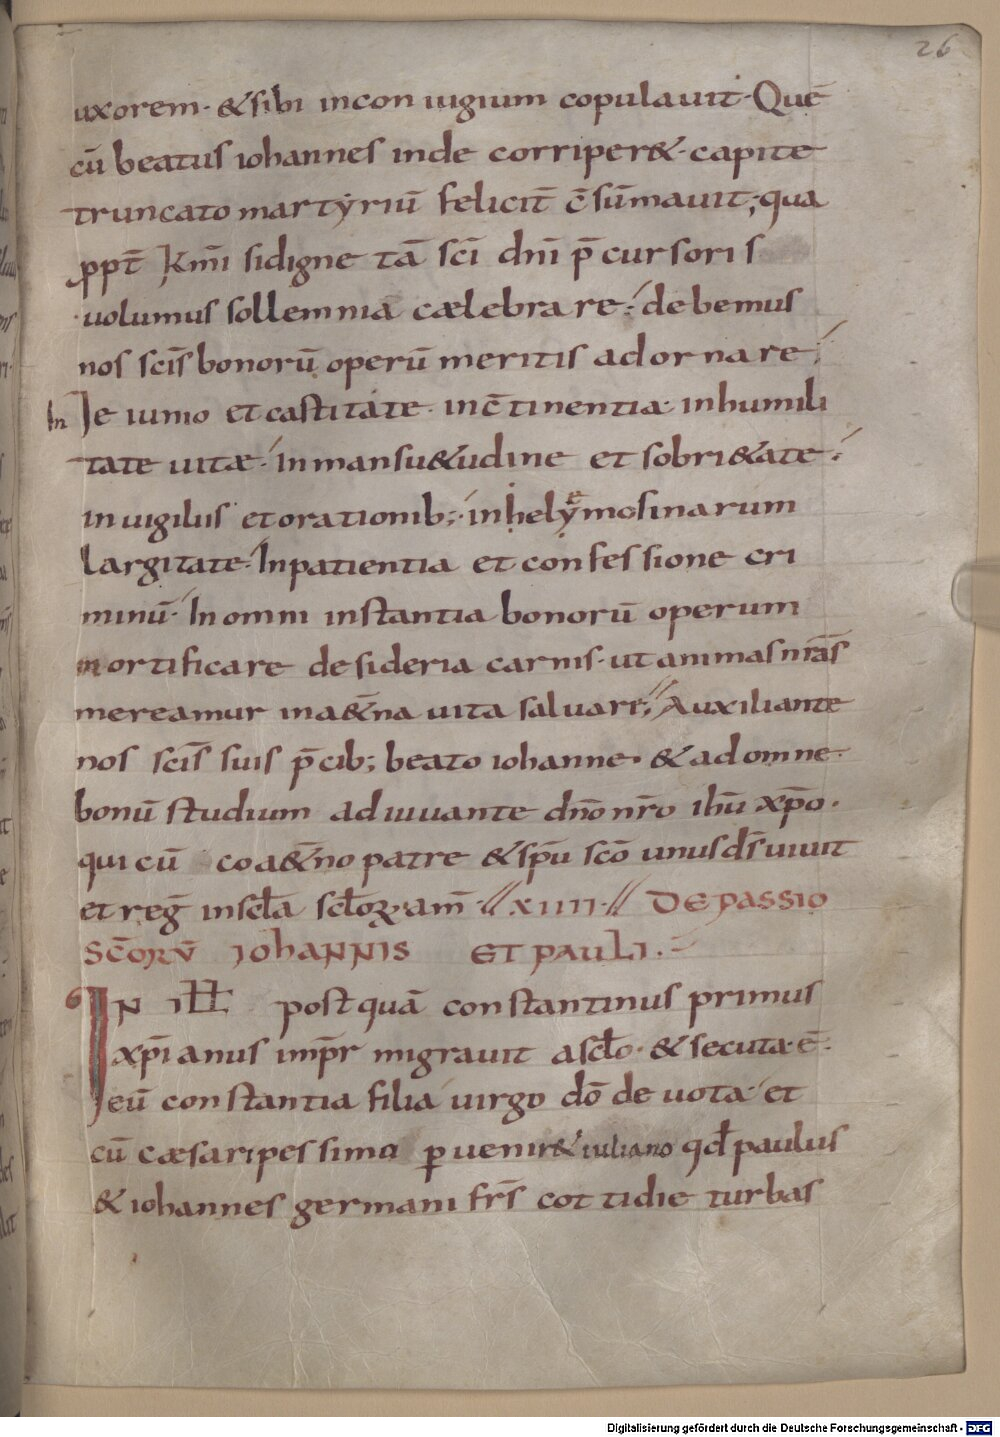 26
uxorem· &sibi incon iugium copulauit· Quē
cū beatus iohannes inde corriper&· capite
truncato martyriū felicit̄ c̄sūmauit; qua
ꝓpt̄ k̄mi sidigne tā sc̄i dn̄i p̄cursoris
uolumus sollemnia cælebrare; debemus
nos sc̄is bonorū operū meritis adornare;
In Ieiunio et castitate· inc̄tinentia· inhumili
tate uitæ· Inmansu&udine et sobri&ate·
inuigiliis et orationib;· inhelyemosinarum
largitate· Inpatientia et confessione cri
minū· In omni instantia bonorū operum
mortificare desideria carnis· ut animas nr̄as
mereamur ina&̄na uita saluare; Auxiliante
nos sc̄is suis p̄cib; beato iohanne· & ad omne
bonū studium adiuuante dn̄o nr̄o ihū xp̄o·
qui cū coa&̄no patre & sp̄u sc̄o unus ds̄ uiuit
et reḡ insc̄la sc̄loꝝ am̄· XIIII· DE PASSIO
SC̄ORŪ IOHANNIS ET PAULI·
6 IN ILL postquā constantinus primus
xp̄ianus imp̄r migrauit asc̄lo· & secuta ē·
eū constantia filia uirgo dō deuota et
cū cæsaripessimo ꝑuenir& iuliano qd̄ paulus
& iohannes germani frs̄ cottidie turbas
Digitalisierung gefördert durch die Deutsche Forschungsgemeinschaft - DFG